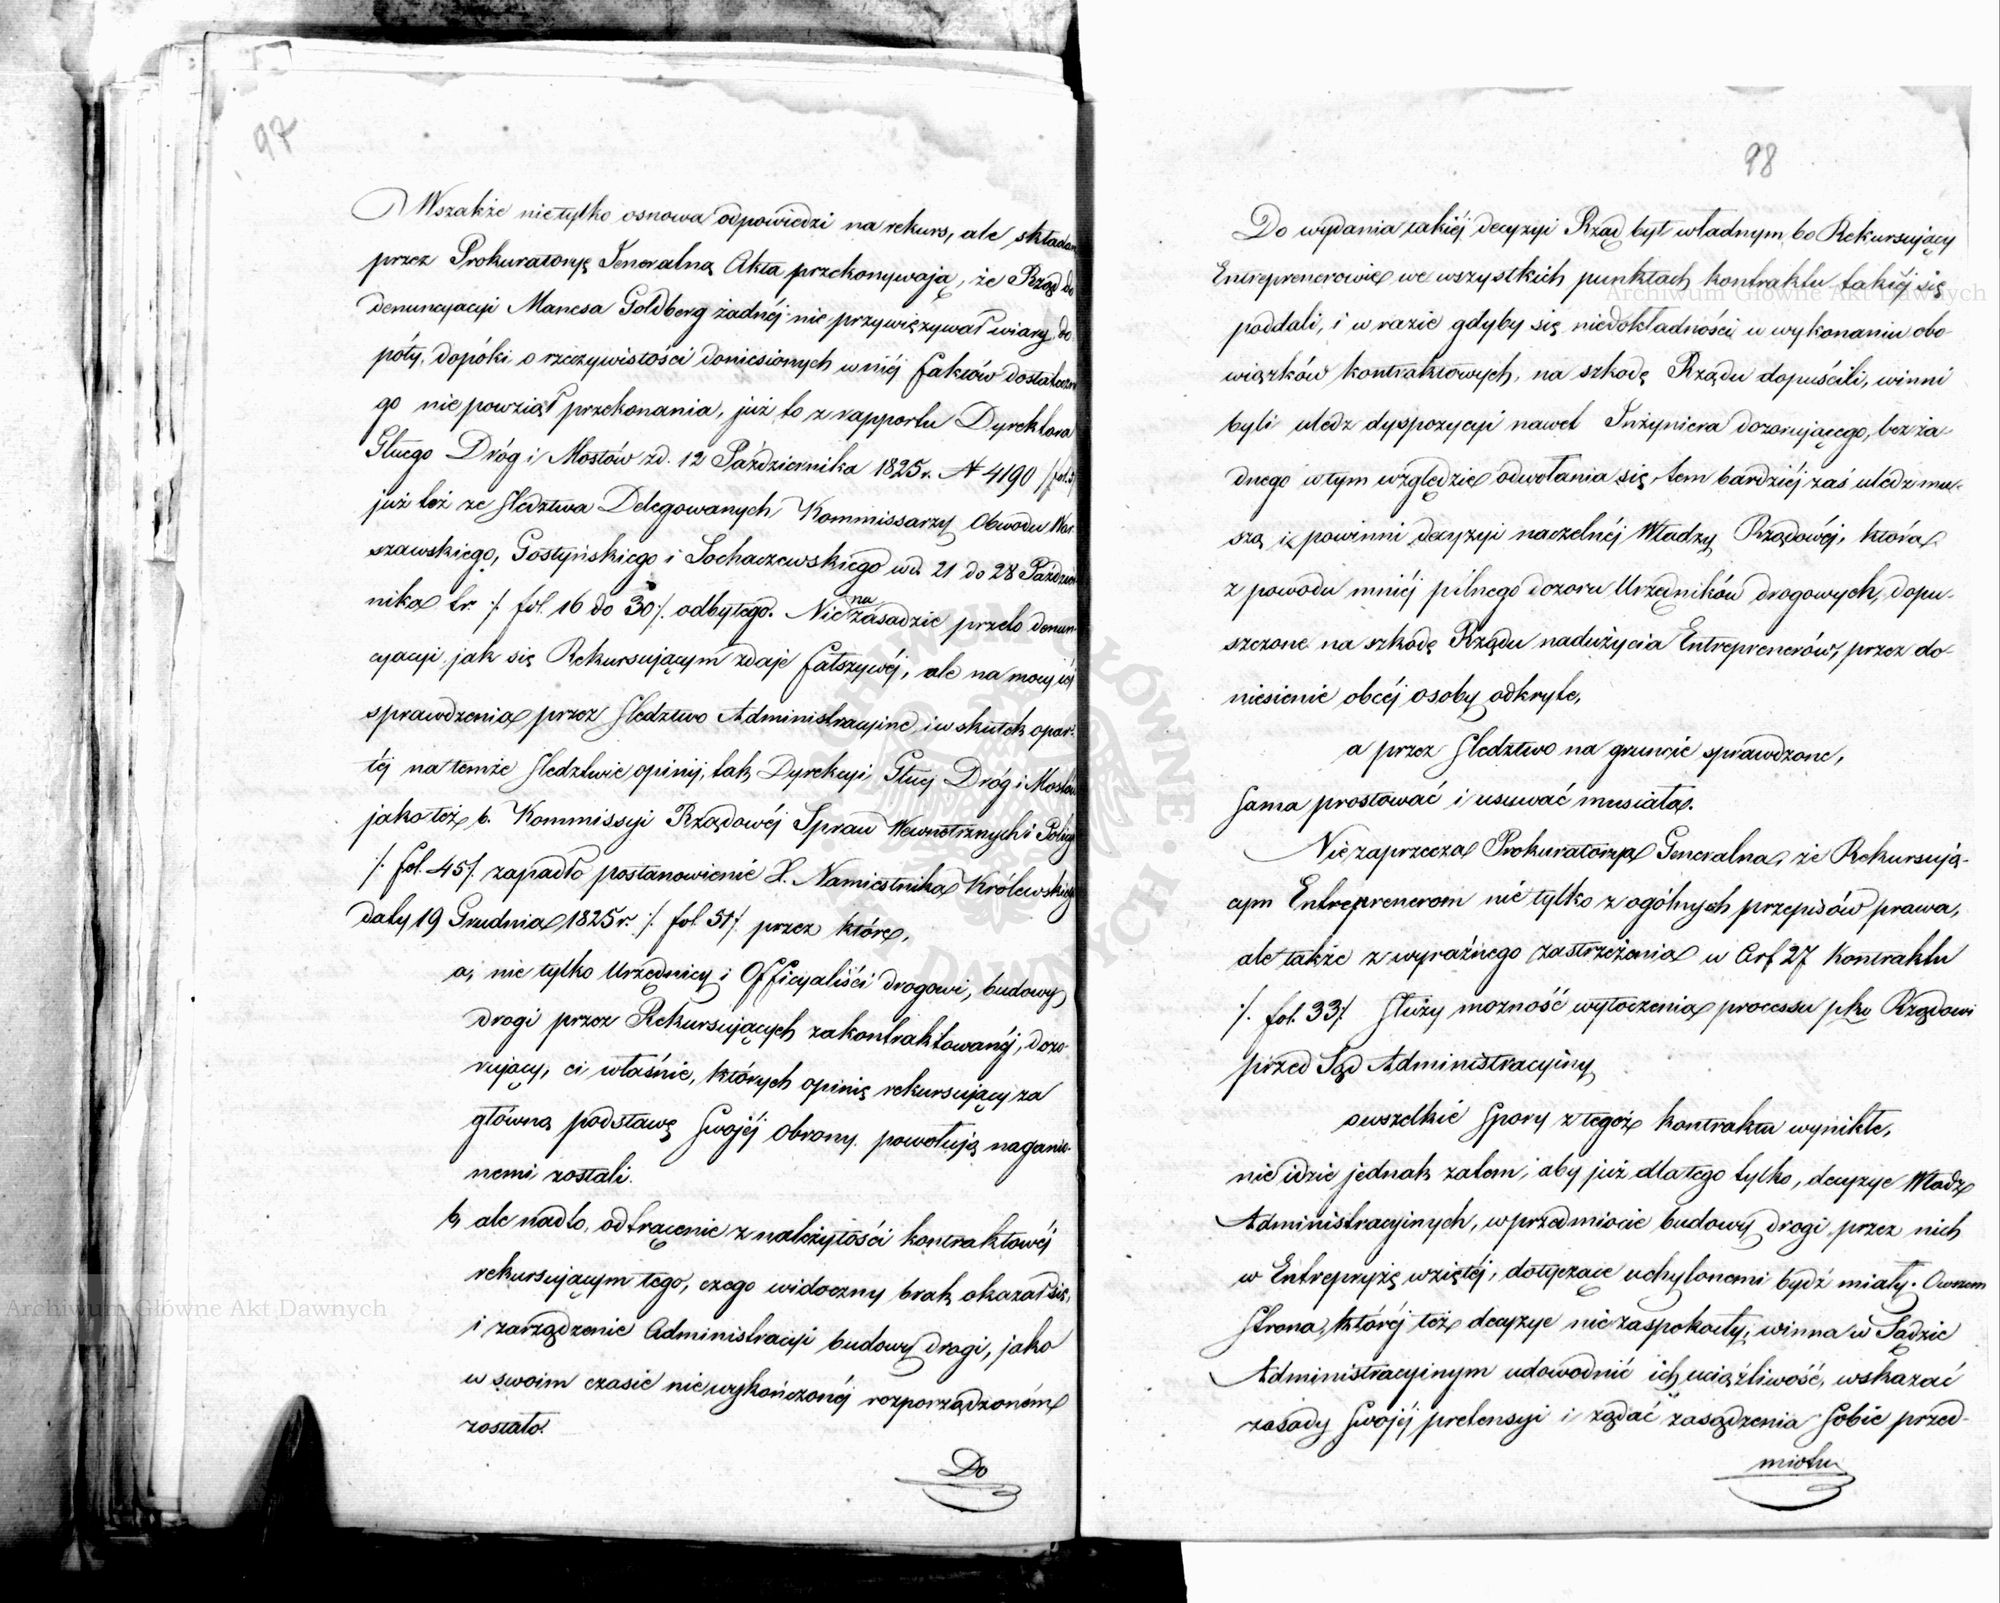 97
Wszakże nietylko osnowa odpowiedzi na rekurs, ale składan
przez Prokuratoryę Jeneralną Akta przekonywają, że Rząd do
denuncyacyi Manesa Goldberg żadnéj nie przywięzywał wiary, do
póty, dopóki o rzeczywistości doniesionych w niéj faktów dostateczn
go nie powziął przekonania, już to z rapportu Dyrektora
Głuego Dróg i Mostów zd. 12 Października 1825 r. N 4190 /: fol. 3
już też ze śledztwa Delegowanych Kommissarzy Obwodu War
szawskiego, Gostyńskiego i Sochaczewskiego wd. 21 do 28 Paździer
nika t.r. /: fol. 16 do 30 /: odbytego. Nie na zasadzie przeto denun
cyacyi jak się Rekursującym zdaje fałszywéj, ale na mocy iéj
sprawdzenia przez śledztwo Administracyine, i w skutek opar
téj na temże śledztwie opinij, tak Dyrekcyi Głuéj Dróg i Mostów
jako też b. Kommissyi Rządowéj Spraw Wewnętrznych i Policyi
/: fol. 45 /: zapadło postanowienie X. Namiestnika Królewskiego
daty 19 Grudnia 1825 r. /: fol 51 /: przez które,
a, nie tylko Urzędnicy i Officyaliści drogowi, budowy
drogi przez Rekursujących zakontraktowanéj, dozo
rujący, ci właśnie, których opinię rekursujący za
główną podstawę swojéj obrony powołują naganio
nemi zostali.
b, ale nadto, odtrącenie z należytości kontraktowéj
rekursującym tego, czego widoczny brak okazał się,
i zarządzenie Administracyi budowy drogi, jako
w swoim czasie nie wykończonéj rozporządzoném
zostało.
Do
98
Do wydania takiéj decyzyi Rząd był władnym, bo Rekursujący
Entreprenerowie we wszystkich punktach kontraktu takiéj się
poddali, i w razie gdyby się niedokładności w wykonaniu obo
wiązków kontraktowych, na szkodę Rządu dopuścili, winni
byli uledz dyspozycyi nawet Inżyniera dozorującego, bez ża
dnego w tym względzie odwołania się, tem bardziéj zaś uledz mu-
szą i powinni decyzyi naczelnéj Władzy Rządowéj, która
z powodu mniéj pilnego dozoru Urzędników drogowych, dopu-
szczone na szkodę Rządu nadużycia Entreprenerów, przez do-
niesienie obcéj osoby odkryte,
a przez śledztwo na gruncie sprawdzone,
sama prostować i usuwać musiała.
Nie zaprzecza Prokuratorya Generalna, że Rekursują-
cym Entreprenerom nie tylko z ogólnych przepisów prawa,
ale także z wyraźnego zastrzeżenia w Art 27 Kontraktu
/: fol. 33 /: służy możność wytoczenia processu pko Rządowi
przed Sąd Administracyiny
o wszelkie spory z tegoż kontraktu wynikłe,
nie idzie jednak zatem, aby już dla tego tylko, decyzye Władz
Administracyinych, w przedmiocie budowy drogi przez nich
w Entrepryzię wziętéj, dotyczące uchylonemi bydź miały. Owszem
Strona, któréj też decyzye nie zaspokoiły, winna w Sądzie
Administracyinym udowodnić ich uciążliwość, wskazać
zasady swojéj pretensyi i żądać zasądzenia sobie przed-
miotu
Archiwum Główne Akt Dawnych
Archiwum Główne Akt Dawnych
ARCHIWUM GŁÓWNE AKT DAWNYCH